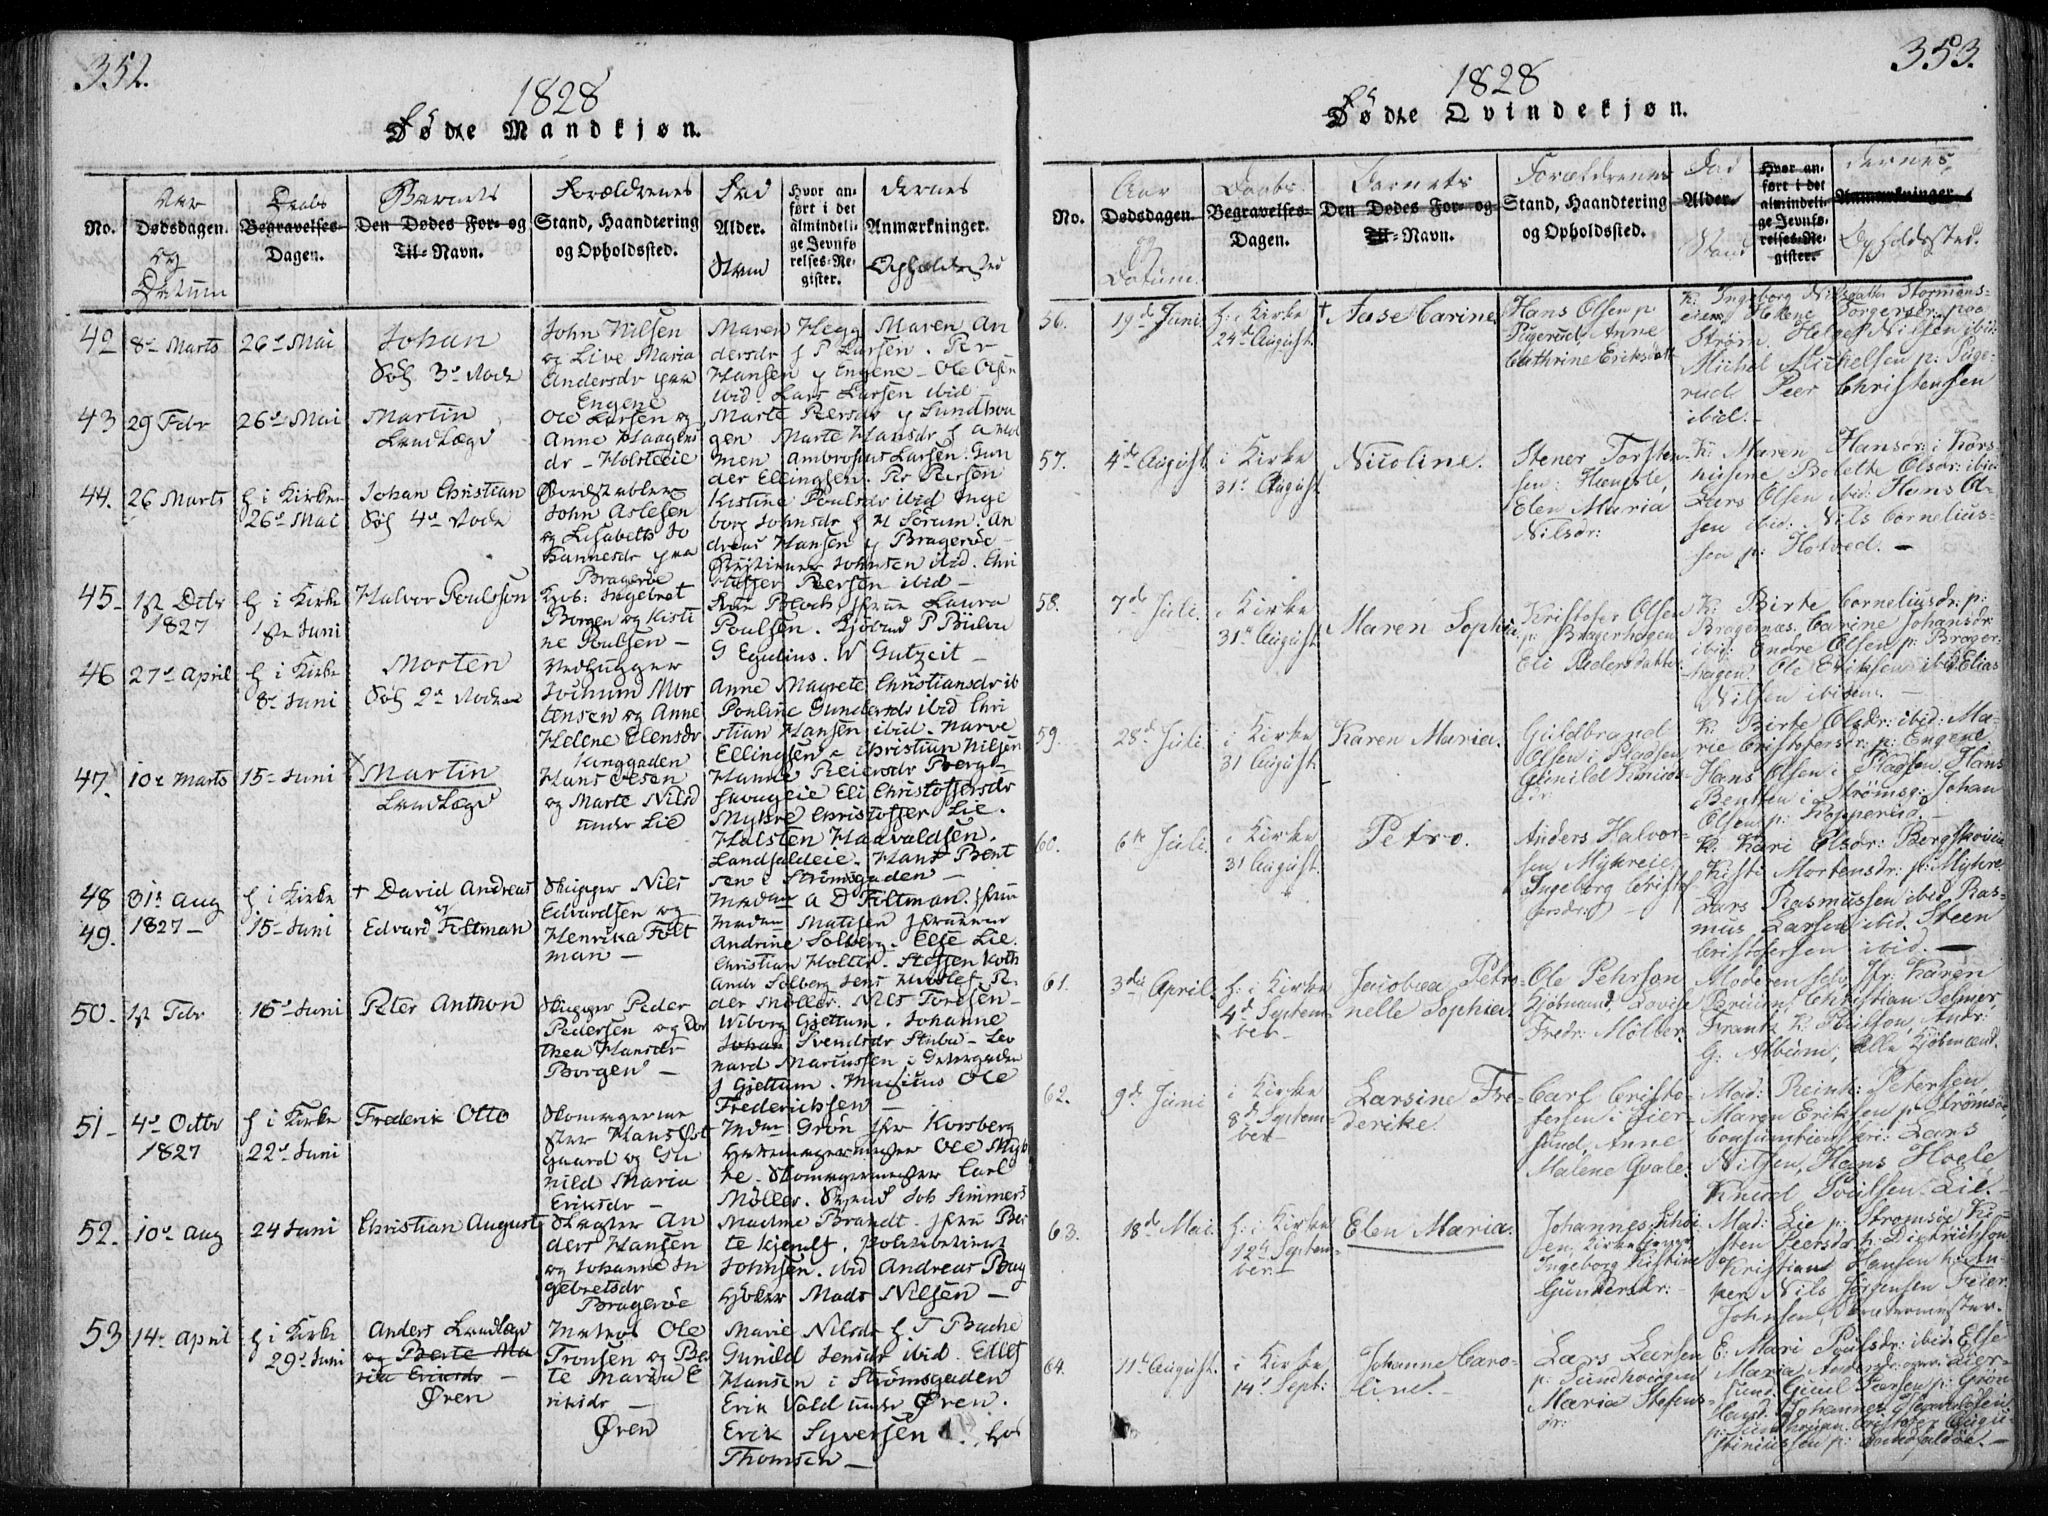 352.
1828
Fødte Mandkjøn.
No.
Aar
Dødsdagen.
og
Datum
Daabs
Begravelses-
Dagen.
Barnets
Den Dødes For- og
Til-Navn.
Forældrenes
Stand, Haandtering
og Opholdssted.
Fad
Alder.
Hvor an-
ført i det
almindeli-
ge Jevnfø-
relses-Re-
gister.
dernes
Anmærkninger.
Opholdssted
42
8de Marts
26de Mai
Johan
Søb 3de Rode
John Nilsen
og Live Maria
Andersdr paa
Engene
Maren Hegg Maren An
dersdr h P Larsen. Per
Hansen p Engene - Ole Olsen
ibid. Lars Larsen ibid -
43
29 Febr
26de Mai
Martin
Landsogn
Ole Larsen og
Anne Haagens
dr - Holsteie
Marte Peersdr p Sundhou
gen Marte Hansdr h And
men Ambrosius Larsen. Gun
der Ellingsen. Per Persen
44.
26 Marts
h i Kirke
26de Mai
Johan Christian
Søb 4de Rode
John Aslesen
og Lisabeth Jo
hannesdr paa
Bragerøe
Kistine Poulsdr ibid Inge
borg Johnsdr h H Sørum. An
dreas Hansen p Bragerøe -
Christian Johnsen ibid. Chri
stoffer Peersen ibid -
45-
1st Dcbr
1827
h i Kirke
1ste Juni
Halvor Poulsson
Kjøb: Ingebret
Borgen og Kisti
ne Poulsen -
Fru Bloch, Frue Laura
Poulsen. Kjøbmd P Bülow
G Egidius. W Gutzeit -
46
27de April
h i Kirke
8de Juni
Morten
Søb 2de Rode
Vedhugger
Jochum Mor
tensen og Anne
Helene Elensdr
Langgaden
Anne Magrete Christiansdr ib
Pouline Gundersdr ibid Chri
stian Hansen ibid. Narve
Ellingsen - Christian Nilsen
47.
10de Marts
15de Juni
Martin
Landsogn
Hans Olsen
og Marte Nilsd
under Lie
Hanne Reiersdr Berg
skougeie Eli Christoffersdr
Myhre Christoffer Lie.
Holsten Haavaldsen.
Landfaldeie. Hans Bent
sen i Strømsgaden -
48
49.
31te Aug
1827 -
h i Kirke
15de Juni
+ David Andreas
og
Edvard Foltman
Skipper Niels
Edvardsen og
Henrika Folt
man -
Madm A D Foltman. Frue
Madm Matisen Jomfruerne
Andrine Solberg - Else Lie.
Christian Holter. Steffen Koth
Andr Solberg Jens Hvoslef Pe
der Møller. Niels Toresen -
50.
1st Febr
15de Juni
Peter Anthon
Skipper Peder
Pedersen og Dor
thea Hansdr
Borgen -
Wiborg Gjettum. Johanne
Johan Svendsdr Stuba - Leo
nard Marcussen i Gatergaden
J Gjettum. Musicus Ole
Frederichsen -
51-
4de Octbr
1827
h i Kirke
22de Juni
Frederik Otto
Skomagerme
ster Hans Øst
gaard og Gu
nild Maria
Eriksdr -
Madm Grøn Fru Korsberg
Hattemagermester Ole Myh
re. Skomagermester Carl
Møller. Svend Joh Simmers
52.
10de Aug
24 Juni
Christian August
Slagter An
ders Hansen
og Johanne In
gebretsdr
Bragerøe
Madme Brandt. Fru Bei
te Kjendt. Politibetient
Johnsen. ibid Andreas Bug
Høker Mads Nilsen -
53
14de April
h i Kirke
29de Juni
Anders Landsogn
og Berte Ma
ria Eriksdr -
Øren
Matros Ole
Tronsen og Be
te Maria E
riksdr -
Øren
Marie Nilsdr h T Bache
Gunild Jensdr ibid. Ellef
Hansen i Strømsgaden
Erik Vold under Øren.
Erik Syversen. hos
Thomsen -
353.
1828
Fødte Qvindekjøn.
No.
Aar
Dødsdagen.
og
Datum.
Daabs
Begravelses-
Dagen.
Barnets
Den Dødes For- og
Til-Navn.
Forældrenes
Stand, Haandtering
og Opholdssted.
Fad
Alder.
Stand
Hvor an-
ført i det
almindeli-
ge Jevnfø-
relses-Re-
gister.
dernes
Anmærkninger.
Opholdssted.
56.
19de Juni.
h: i Kirke
24de August.
+ Aase Karine.
Hans Olsen p
Pugerud, Anne
Cathrine Eriksdatt
K: Ingeborg Nilsdatter Stormans-
eien, Helene Torgersdr: paa
Strøm. Helge Nilsen ibid:
Michel Michelsen p: Puge-
rud Peer Christensen
ibid. -
57.
4de August.
i Kirke
31te August
Nicoline.
Stener Torsten-
sen: Hængsle,
Elen Maria
Nilsdr:
K: Maren Hansdr: i Kors
husene Bolette Olsdr: ibid
Lars Olsen ibid: Hans Ol-
sen ibid: Nils Cornelius-
sen p: Hotved. -
58.
7de Juli.
i Kirke
31te August
Maren Sophia
Kristofer Olsen
p: Bragerhagen
Eli Pedersdatter
K: Birte Corneliusdr: p:
Bragernæs. Carine Johansdr
ibid: Andre Olsen p: Brager-
hagen. Ole Eriksen ibid Elias
Nilsen ibidem. -
59.
28de Juli.
i Kirke
31 August.
Karen Maria.
Guldbrand
Olsen i Pladsen
Gunild Knuds-
dr:
K: Birte Olsdr: ibid: Ma-
rie Cristofersdr: p: Engene
Hans Olsen i Pladsen. Hans
Bentsen i Strømsg: Johan
Olsen p: Kopperud. -
60.
6te Juli.
i Kirke
31 August.
Petro.
Anders Halvor-
sen Myhreie,
Ingeborg Cristof
fersdr: -
K: Kari Olsdr: Bergskoveie
Kisti Mortensdr: p: Myhre
Lars Rasmussen ibid Ras-
mus Larsen ibid. Steen
Cristofersen ibid. -
61.
3die April.
h: i Kirke
4de Septem-
ber -
Jacobæa Petro-
nelle Sophia.
Ole Pehrson
Kjøbmand, Lovise
Fredr: Møller.
Moderen selv, Fr: Karen
Bruun, Christian Selmer,
Frantz K: Poulson, Andr:
G: Album, alle Kjøbmænd.
62.
9de Juni
i Kirke
8de Septem-
ber.
Larsine Fre-
derike
Carl Cristo-
fersen i Lier-
sund, Anne
Malene Qvale.
Mad: Reink: Petersen
Maren Eriksen p: Strømsøe
Consumtionskri: Lars
Nilsen, Hans Hoele
Knud Poulsen. Lie. -
63.
18de Mai.
h: i Kirke
12te Septem-
ber -
Elen Maria.
Johannes
Ingeborg Kistine
Gundersdr: -
Mad: Lie p: Strømsøe
sten Peersdr h: Diderichsen
Kristian Hansen h: An-
per Nils Jørgensen Feier
Johnsen,
64.
11te August.
i Kirke
14de Sept:
Johanne Caro-
line. -
Lars Larsen
p: Sundhougen
Maria Stefens-
dr:
E: Mari Poulsdr: ibid. Else
Maria Andersdr: over Lier-
sund. Paul Larsen p: Grøn
land. Johannes Haavaldsen
p: Sundhougen Cristofer Augu
stiniussen p: Landfaldøe. -